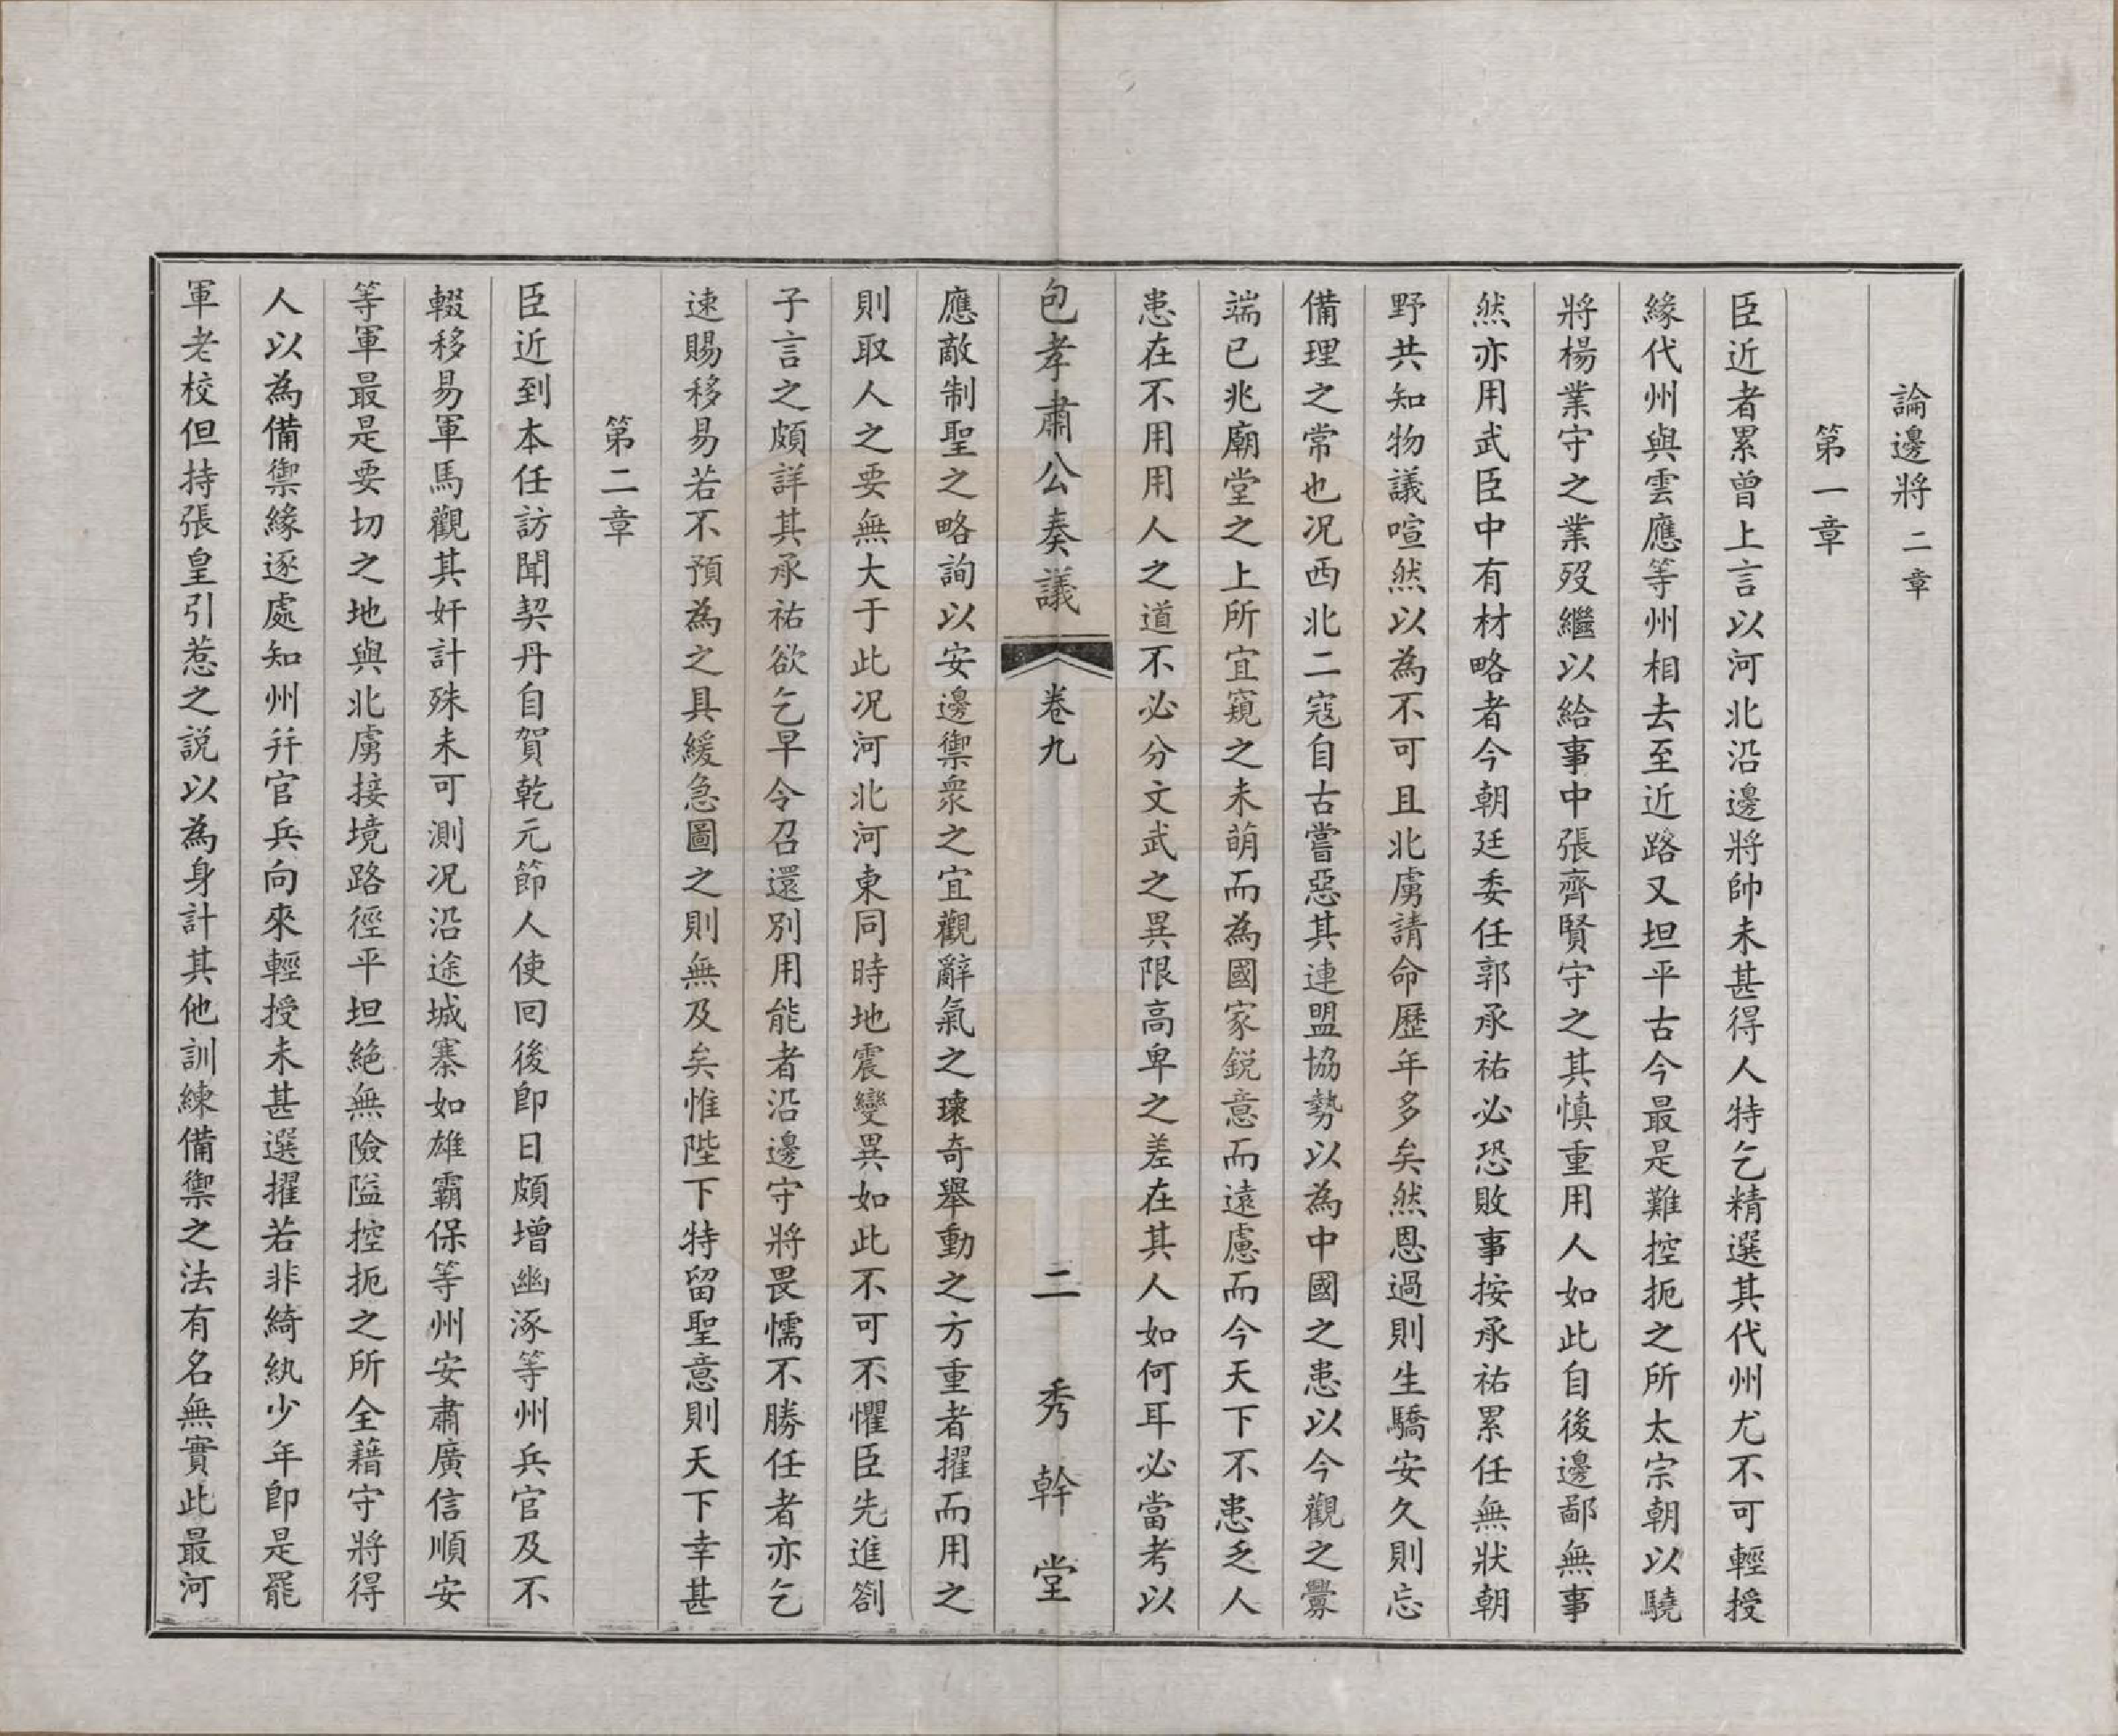 論邊將二章
第一章
臣近者累曾上言以河北沿邊將帥未甚得人特乞精選其代州尤不可輕授
緣代州與雲應等州相去至近路又坦平古今最是難控扼之所太宗朝以驍
將楊業守之業歿繼以給事中張齊賢守之其慎重用人如此自後邊鄙無事
然亦用武臣中有材略者今朝廷委任郭承祐必恐敗事按承祐累任無狀朝
野共知物議喧然以為不可且北虜請命歷年多矣然恩過則生驕安久則忘
備理之常也况西北二寇自古嘗惡其連盟協勢以為中國之患以今觀之釁
端已兆廟堂之上所宜窺之未萌而為國家銳意而遠慮而今天下不患乏人
患在不用用人之道不必分文武之異限高卑之差在其人如何耳必當考以
包孝肅公奏議 卷九 二 秀幹堂
應敵制聖之略詢以安邊禦衆之宜觀辭氣之瓌奇舉動之方重者擢而用之
則取人之要無大于此况河北河東同時地震變異如此不可不懼臣先進劄
子言之頗詳其承祐欲乞早令召還別用能者沿邊守將畏懦不勝任者亦乞
速賜移易若不預為之具緩急圖之則無及矣惟陛下特留聖意則天下幸甚
第二章
臣近到本任訪聞契丹自賀乾元節人使回後即日頗增幽涿等州兵官及不
輟移易軍馬觀其奸計殊未可測况沿途城寨如雄霸保等州安肅廣信順安
等軍最是要切之地與北虜接境路徑平坦絕無險隘控扼之所全藉守將得
人以為備禦緣逐處知州并官兵向來輕授未甚選擢若非綺紈少年即是罷
軍老校但持張皇引惹之説以為身計其他訓練備禦之法有名無實此最河